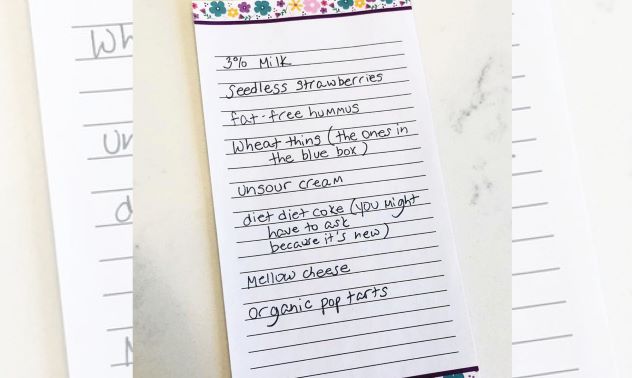 3% Milk
Seedless strawberries
fat-free hummus
Wheat thing (the ones in
the blue box)
unsour cream
diet diet coke (you might
have to ask
because it's new)
Mellow cheese
organic pop tarts
Wh
un
d